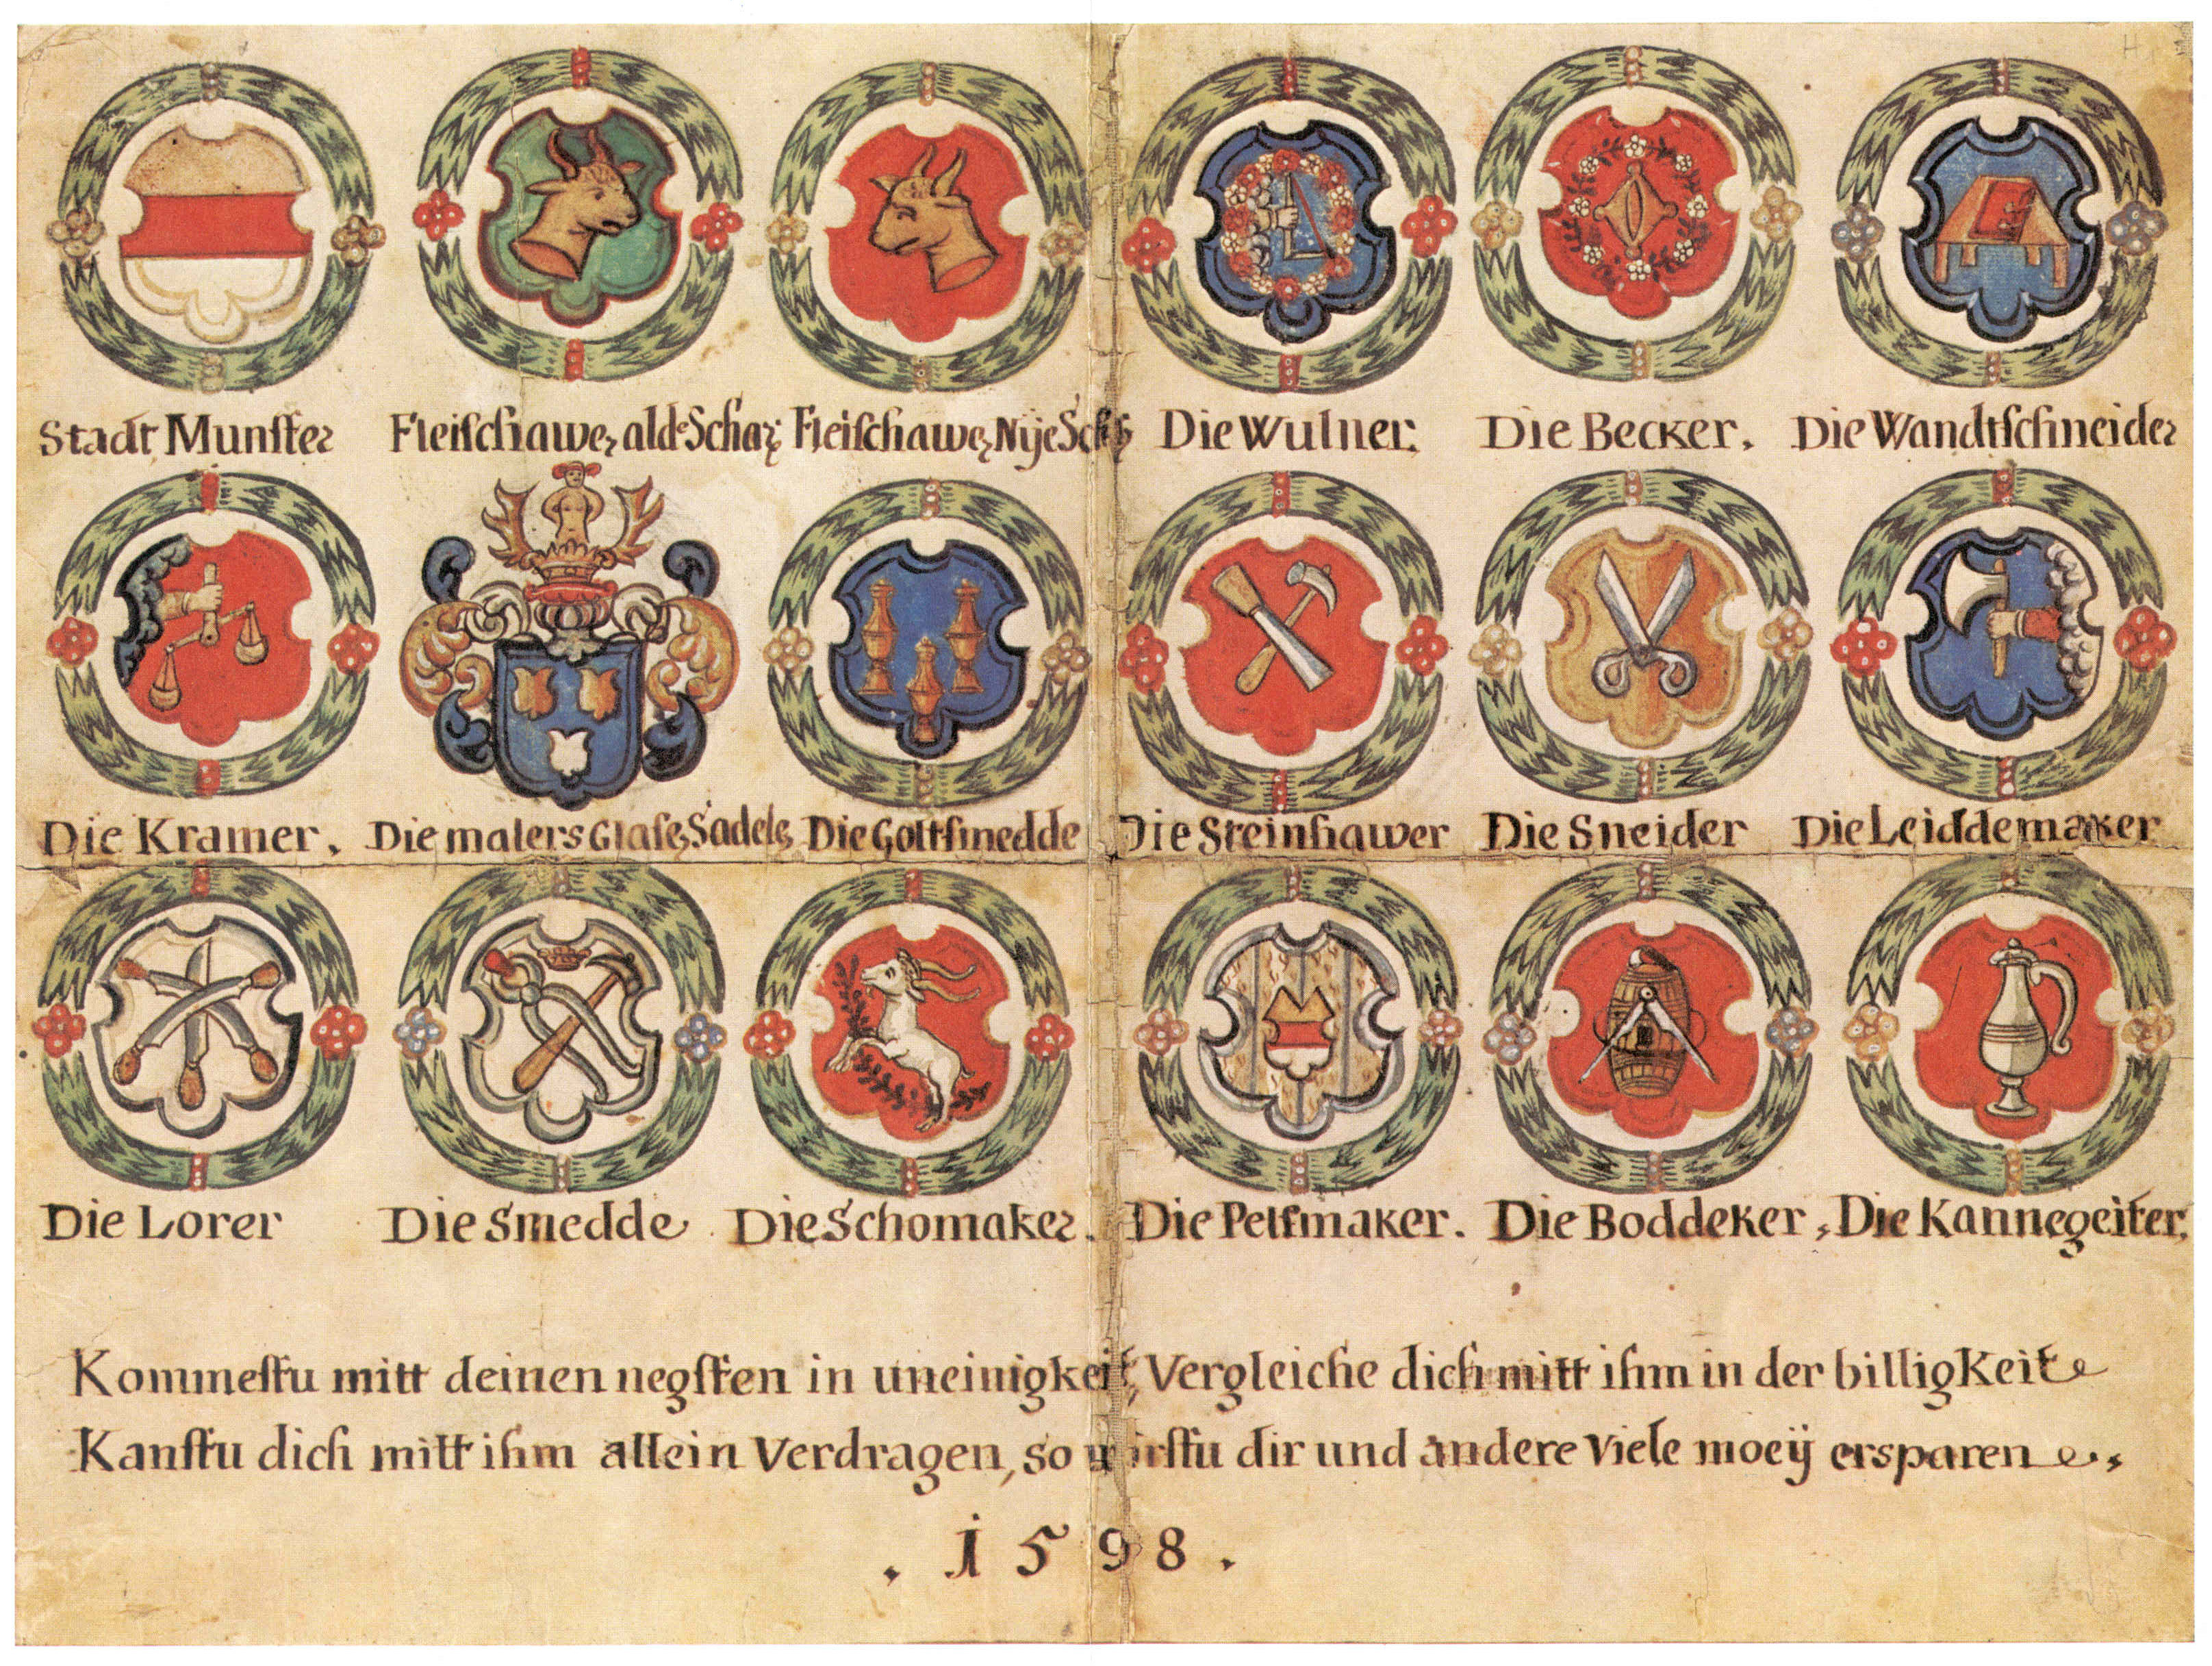 Stadt Munster Fleischawer ald Schar Fleischawer Nije Die Wulner. Die Becker. Die Wandtschneider
Die Kramer. Die malers Glase Sadele Die Goltsmedde Die Steinhawer Die Sneider Die Leiddemaker
Die Lorer Die Smedde Die Schomaker. Die Pelsmaker. Die Boddeker, Die Kannegeiter,
Kommestu mitt deinen negsten in uneinigkeit, Vergleiche dich mitt ihm in der billigkeite
Kanstu dich mitt ihm allein Verdragen, so wirstu dir und andere Viele moeÿ ersparen
. 1598 .